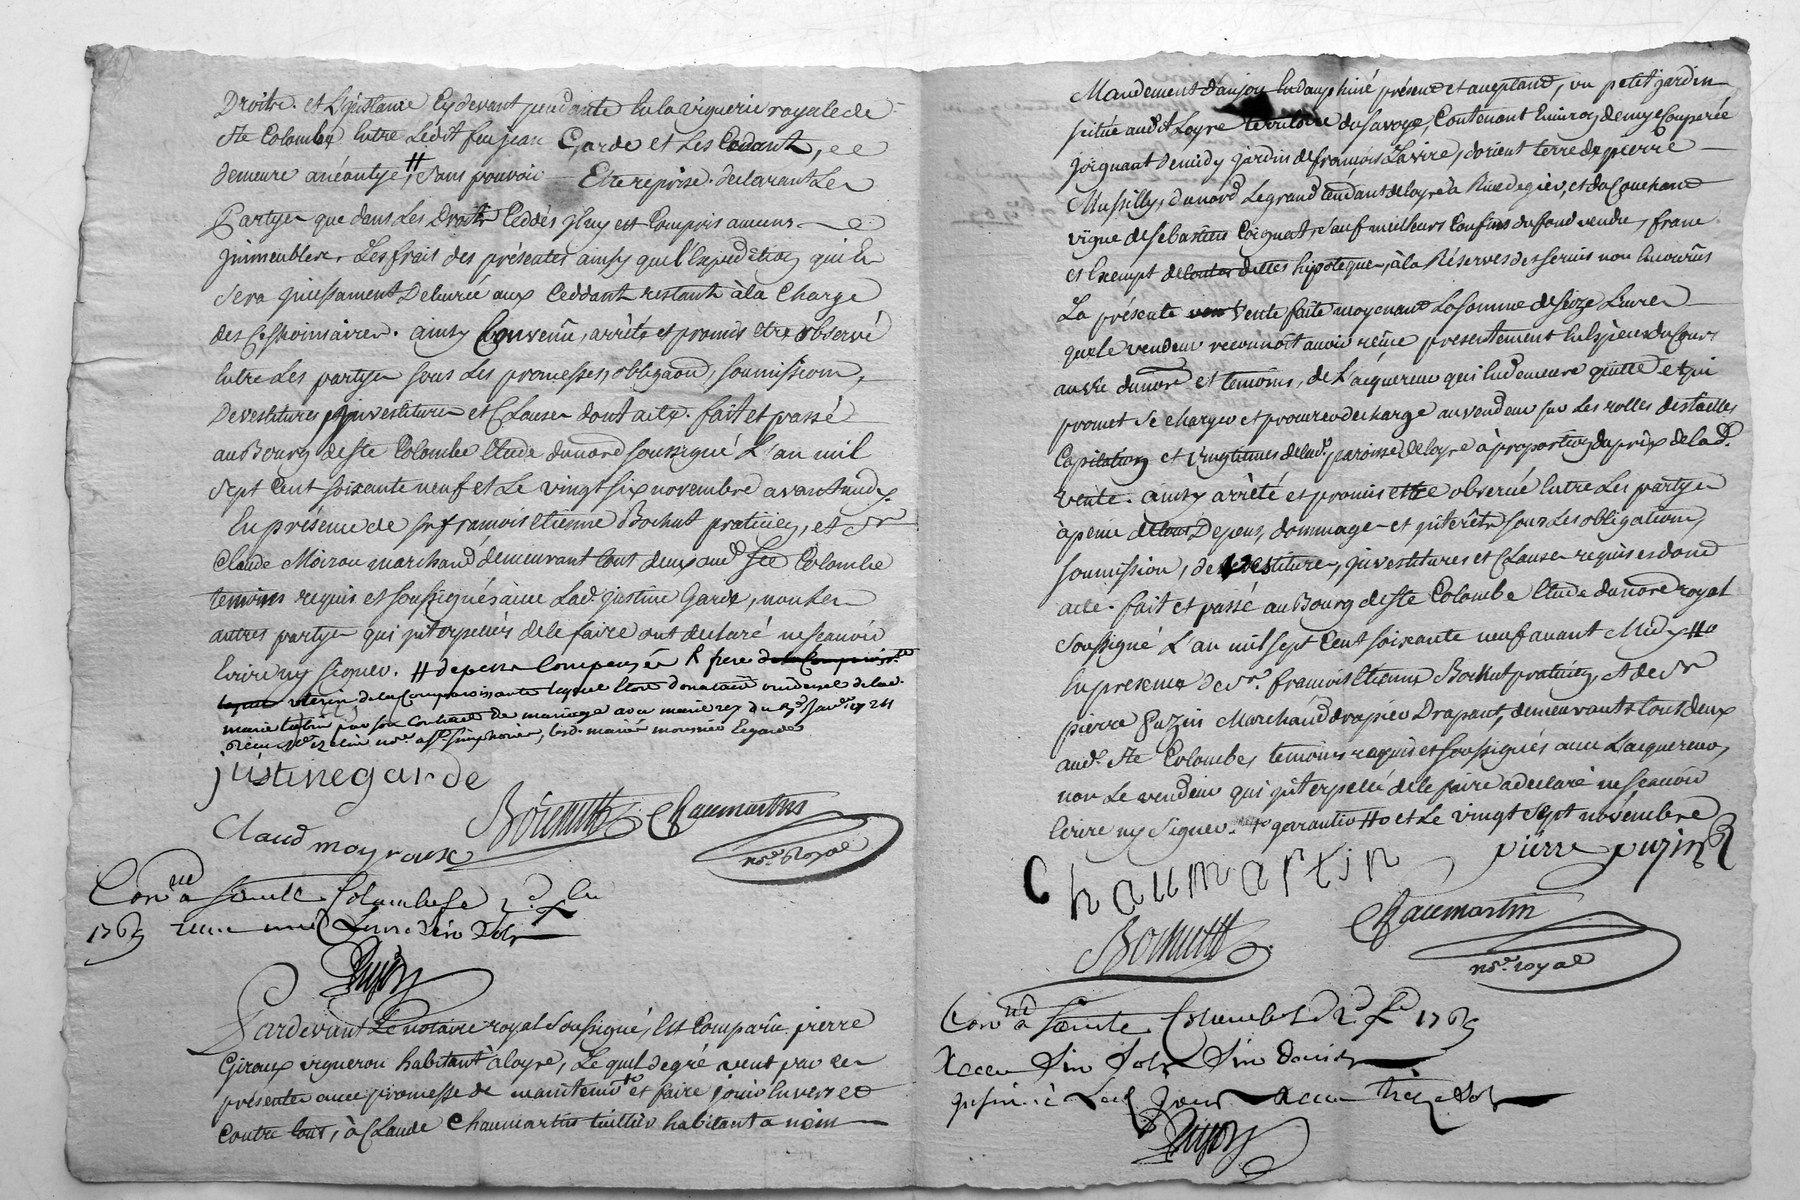 Droits. et L'instance cy devant pendante en la viguerie royale de
Ste Colombe entre Ledit feu jean Garde et Les Cedants,
demeure anéantye, # sans pouvoir Etre reprise. declarant Les
Partyes que dans Les Droits Ceddés il n'y est Compris aucuns
jmmeubles. Les frais des présentes ainsy que l'Expedition qui en
sera jncessament Delivrée aux Ceddants restants à la Charge
des Cessionnaires. ainsy Convenû, arrêté et promis etre observé
entre Les partyes sous Les promesses, obligaons, soumissions,
Devestitures jnvestitures et Clauses dont acte. fait et passé
au Bourg de Ste Colombe Etude du nore soussigné L'an mil
sept Cent soixante neuf et Le vingt six novembre avant midy.
En présence de sr. francois Etienne Bochut praticien, et sr
Claude Moirou marchand demeurant tout deux aud Ste Colombe
temoins requis et soussignés avec Lad. justine Garde, non Les
autres partyes qui jnterpellés de le faire ont declaré ne scavoir
Ecrire ny signer. # depens Compensés & frere de la Comparoissante
uterin de la Comparoissante lequel Etoit donataire universel de lad.
marie par son Contract de mariage avec marie rey du
justine garde
Claud moyroux
Bochutt Chaumartin
nore royal
Conlé à Sainte Colombe le 2d. Xbre
1769 Reçu
Pardevant Le notaire royal Soussigné, Est Comparû. pierre
Giroux vigneron habitant à Loyre, Lequel de gré vent par ces
presentes avec promesse de maintenir et faire jouir Envers et
Contre tous, à Claude Chaumartin tuillier habitant a
Mandement d'anjou En dauphiné présent et aceptant, un petit jardin
situé audit Loyre territoire du savoye, Contenant Environ demy Couperée
joignant de midy jardin de francois Lavire, d'orient terre de pierre
Mussilly, du nord Le grand Tendant de Loyre à Rive de gier, et du Couchant
vigne de Sebastien Coignat, sauf meilleurs Confins du fond vendu, franc
et Exempt de toutes dettes hipoteques, à la Réserves des servis non Encourûs
La présente vente faite moyenant La somme de seize Livres
que le vendeur reconnoit avoir reçue presentement En Espèces du Cours
au vû du nore et temoins, de L'acquereur qui En demeure quitte et qui
promet se charger et procurer decharge au vendeur sur Les rolles des tailles
Capitation et vingtiemes de lad. paroisse de Loyre à proportion du prix de lad.
vente. ainsy arrêté et promis etre observé Entre Les partyes
à peine de tous Depens, dommages et jnterêts sous Les obligations,
soumissions, devestitures, jnvestitures et Clauses requises dont
acte. fait et passé au Bourg de Ste Colombe Etude du nore royal
soussigné L'an mil sept Cent soixante neuf avant Midy #o
En presence de Sr. francois Etienne Bochut praticien, et de Sr
pierre Puzin Marchand drapier Drapant, demeurants tout deux
aud. Ste Colombe, temoins requis et soussignés avec L'acquereur,
non Le vendeur qui jnterpellé de le faire a declaré ne scavoir
Ecrire ny signer. garantir #o et Le vingt sept novembre
Chaumartin pierre puzin
Bochutt Chaumartin
nore royal
Conlé à Sainte Colombe le 2d. Xbre 1769